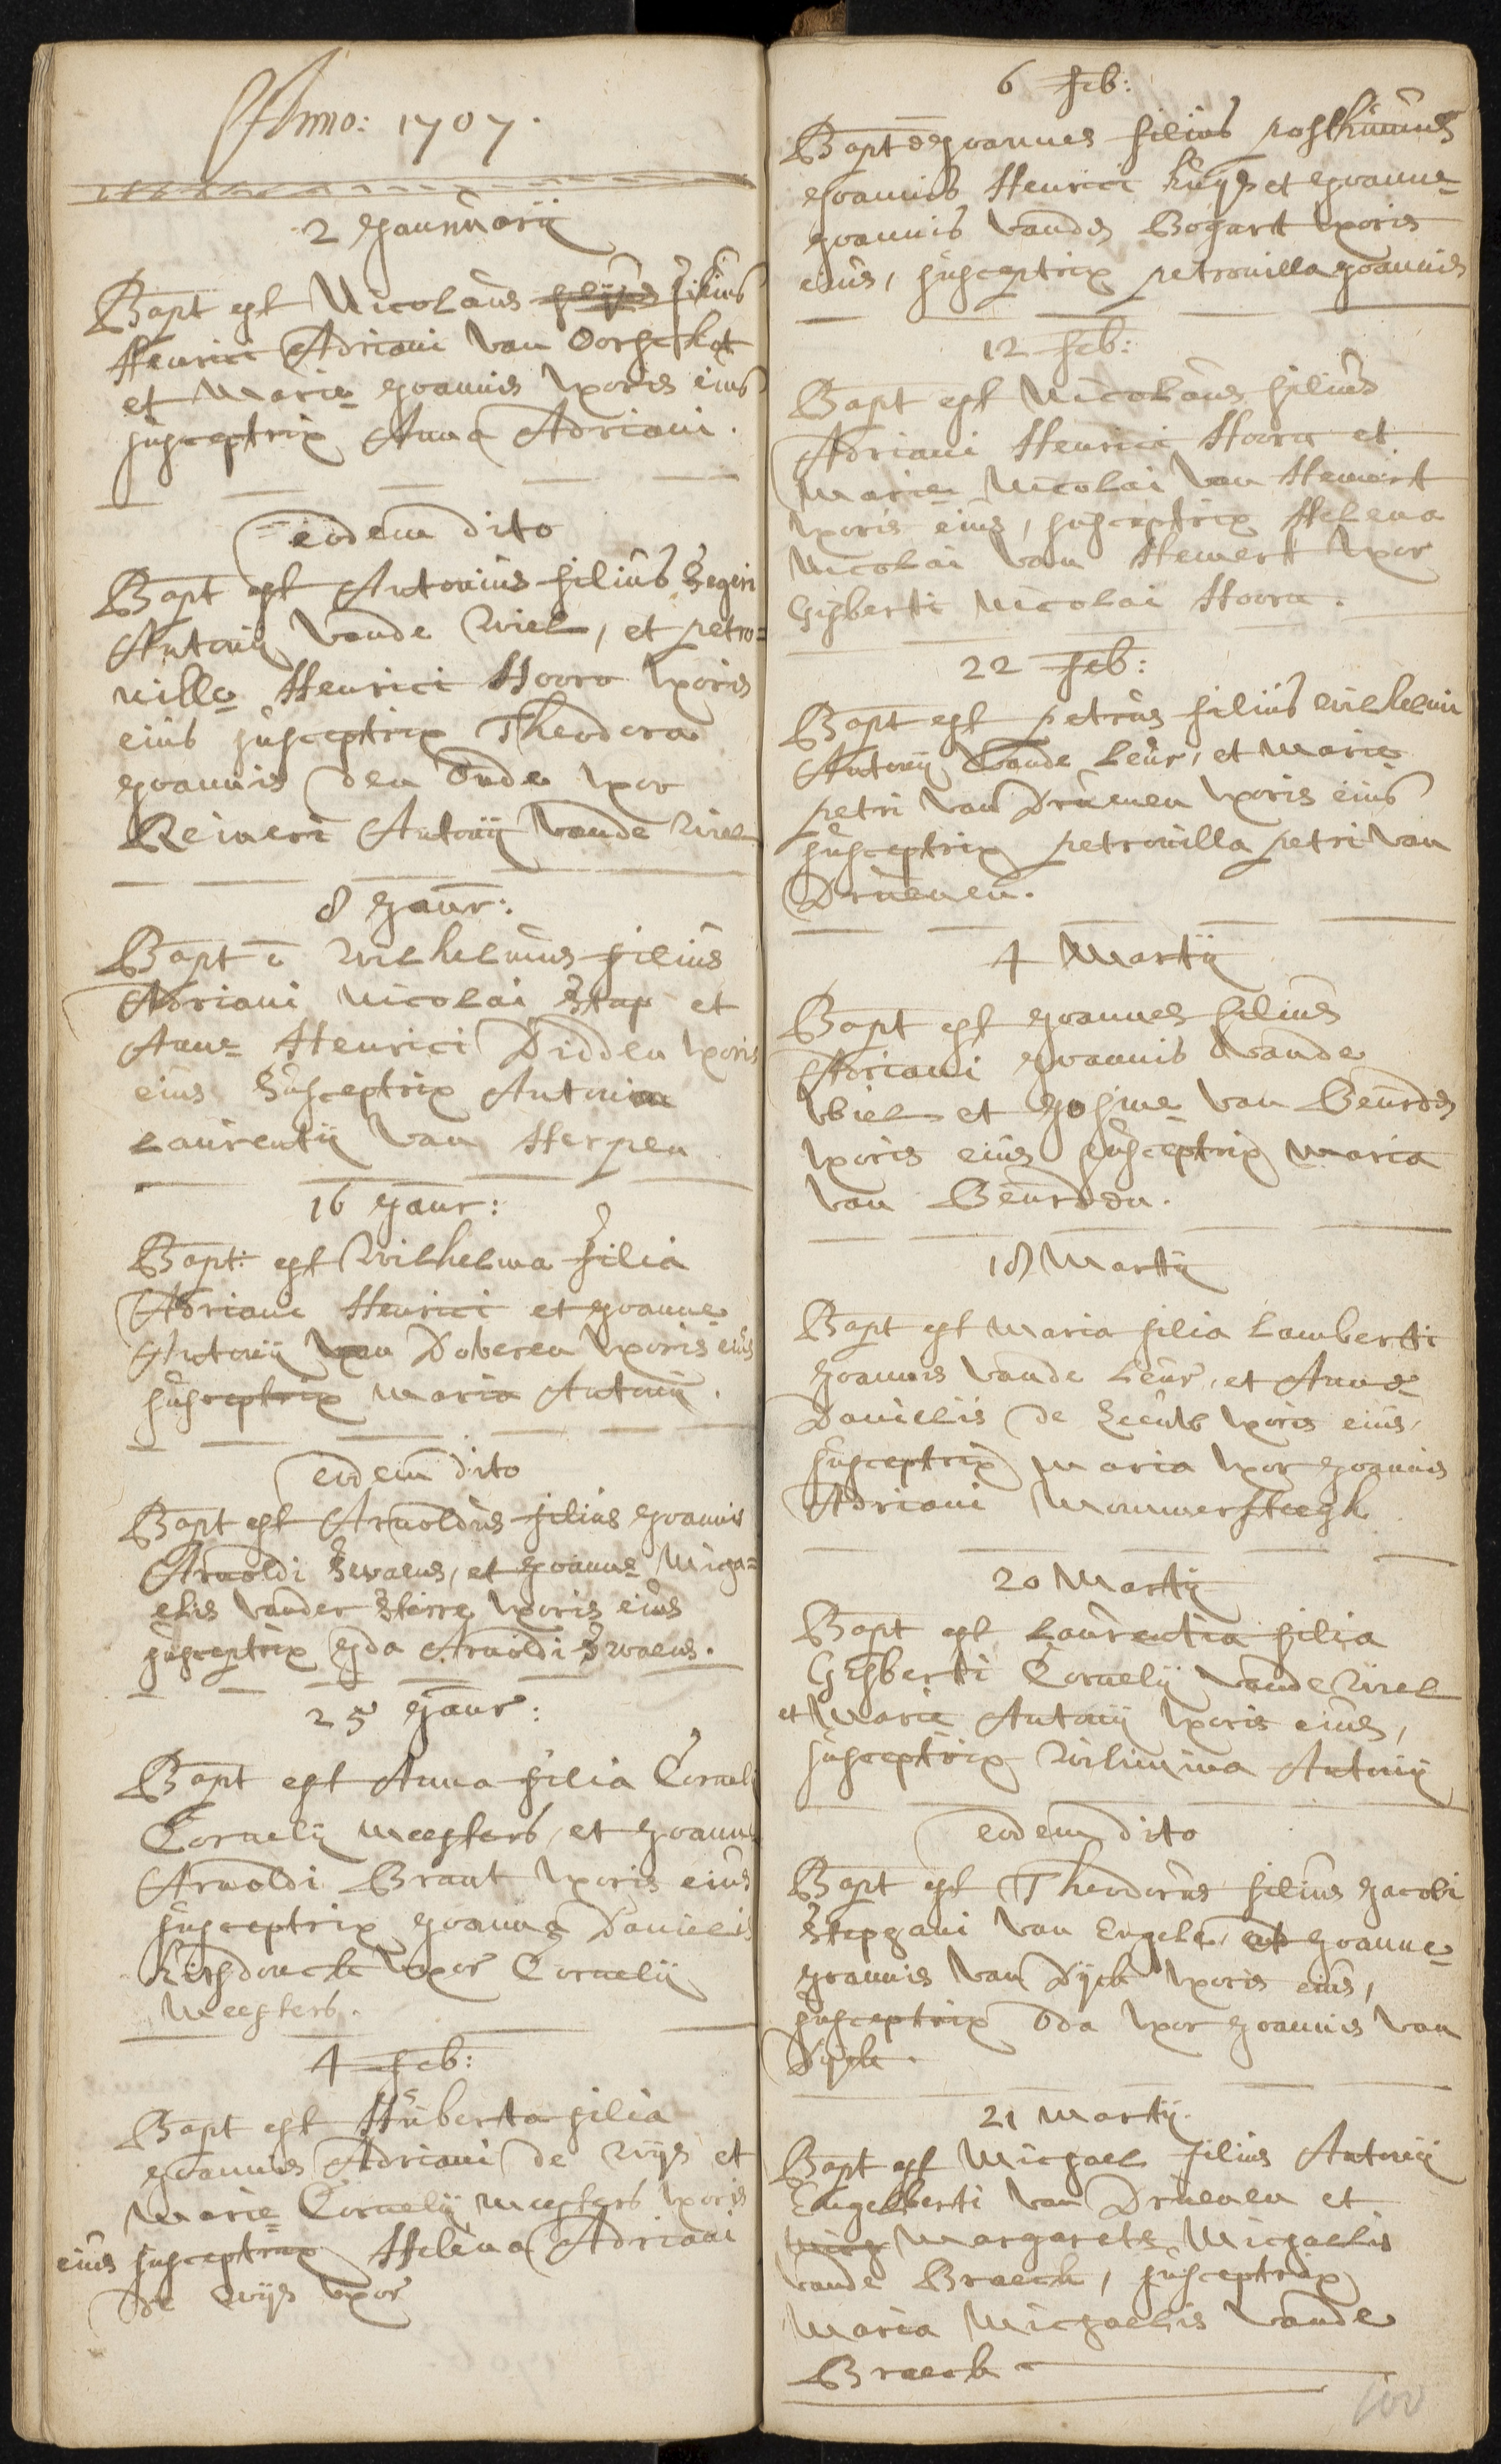 Anno: 1707.
2 Jannuarij
Bapt est Nicolaus filius
Henrici Adriani van Oorschot
et Mariæ Joannis uxoris eius
susceptrix Anna Adriani.
eodem dito
Bapt est Antonius filius Segeri
Antonij vande Wiel, et petro=
nillæ Henrici Hoorn uxoris
eius susceptrix Theodora
Joannis den Oude uxor
Reineri Antonij vande Wiel
8 Janr:
Bapt ē Wilhelmus filius
Adriani Nicolai Stap et
Annæ Henrici Didden uxoris
eius Susceptrix Antonia
Laurentij van Herpen
16 Janr:
Bapt: est Wilhelma filia
Adriani Henrici et Joannæ
Antonij van Doberen uxoris eius
susceptrix Maria Antonij.
eodem dito
Bapt est Arnoldus filius Joannis
Arnoldi Swaens, et Joannæ Micha=
elis vander Sterre uxoris eius
susceptrix Ida Arnoldi Swaens.
25 Janr:
Bapt est Anna filia Cornelij
Cornelij Meesters, et Joannæ
Arnoldi Brant uxoris eius
susceptrix Joanna Danielis
uxor Cornelij
Meesters.
4 feb:
Bapt est Huberta filia
Joannis Adriani de Wijs et
Mariæ Cornelij Meesters uxoris
eius susceptrix Helena Adriani
de Wijs uxor
6 feb:
Bapt ē Joannes filius posthumus
Joannis Henrici et Joannæ
Joannis vanden Bogart uxoris
eius, susceptrix petronilla Joannis
12 feb:
Bapt est Nicolaus filius
Adriani Henrici Hoorn et
Mariæ Nicolai van Hemert
uxoris eius, susceptrix Helena
Nicolai van Hemert uxor
Gisberti Nicolai Hoorn.
22 feb:
Bapt est petrus filius Wilhelmi
Antonij vande Leur, et Mariæ
petri van Drunen uxoris eius
susceptrix petronilla petri van
Drunen.
4 Martij
Bapt est Joannes filius
Adriani Joannis vande
Wiel et Josinæ van Beurden
uxoris eius susceptrix Maria
van Beurden.
18 Martij
Bapt est Maria filia Lamberti
Joannis vande Leur, et Annæ
Danielis de Seeuw uxoris eius,
susceptrix Maria uxor Joannis
Adriani Mommersteegh
20 Martij
Bapt est Laurentia filia
Gisberti Cornelij vande Wiel
et Mariæ Antonij uxoris eius,
susceptrix Wilimina Antonij
eodem dito
Bapt est Theodorus filius Jacobi
Stephani van Engelen, et Joannæ
Joannis van Dijck uxoris eius,
susceptrix Oda uxor Joannis van
Dijck.
21 Martij.
Bapt est Michael filius Antonij
Engelberti van Drunen et
Margaretæ Michaelis
vande Braeck, susceptrix
Maria Michaelis vande
Braeck
100